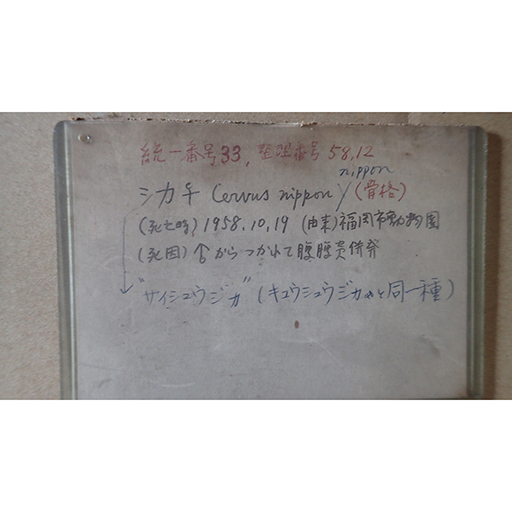 統一番号33, 整理番号 58.12
nippon
シカ Cervus nippon (骨格)
(死亡時) 1958.10.19 (由来) 福岡市動物園
(死因) ♂からつかれて腹膜炎併発
"サイシュウジカ" (キュウシュウジカと同一種)